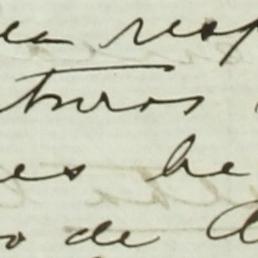 ea resp
turos
es he
o de d